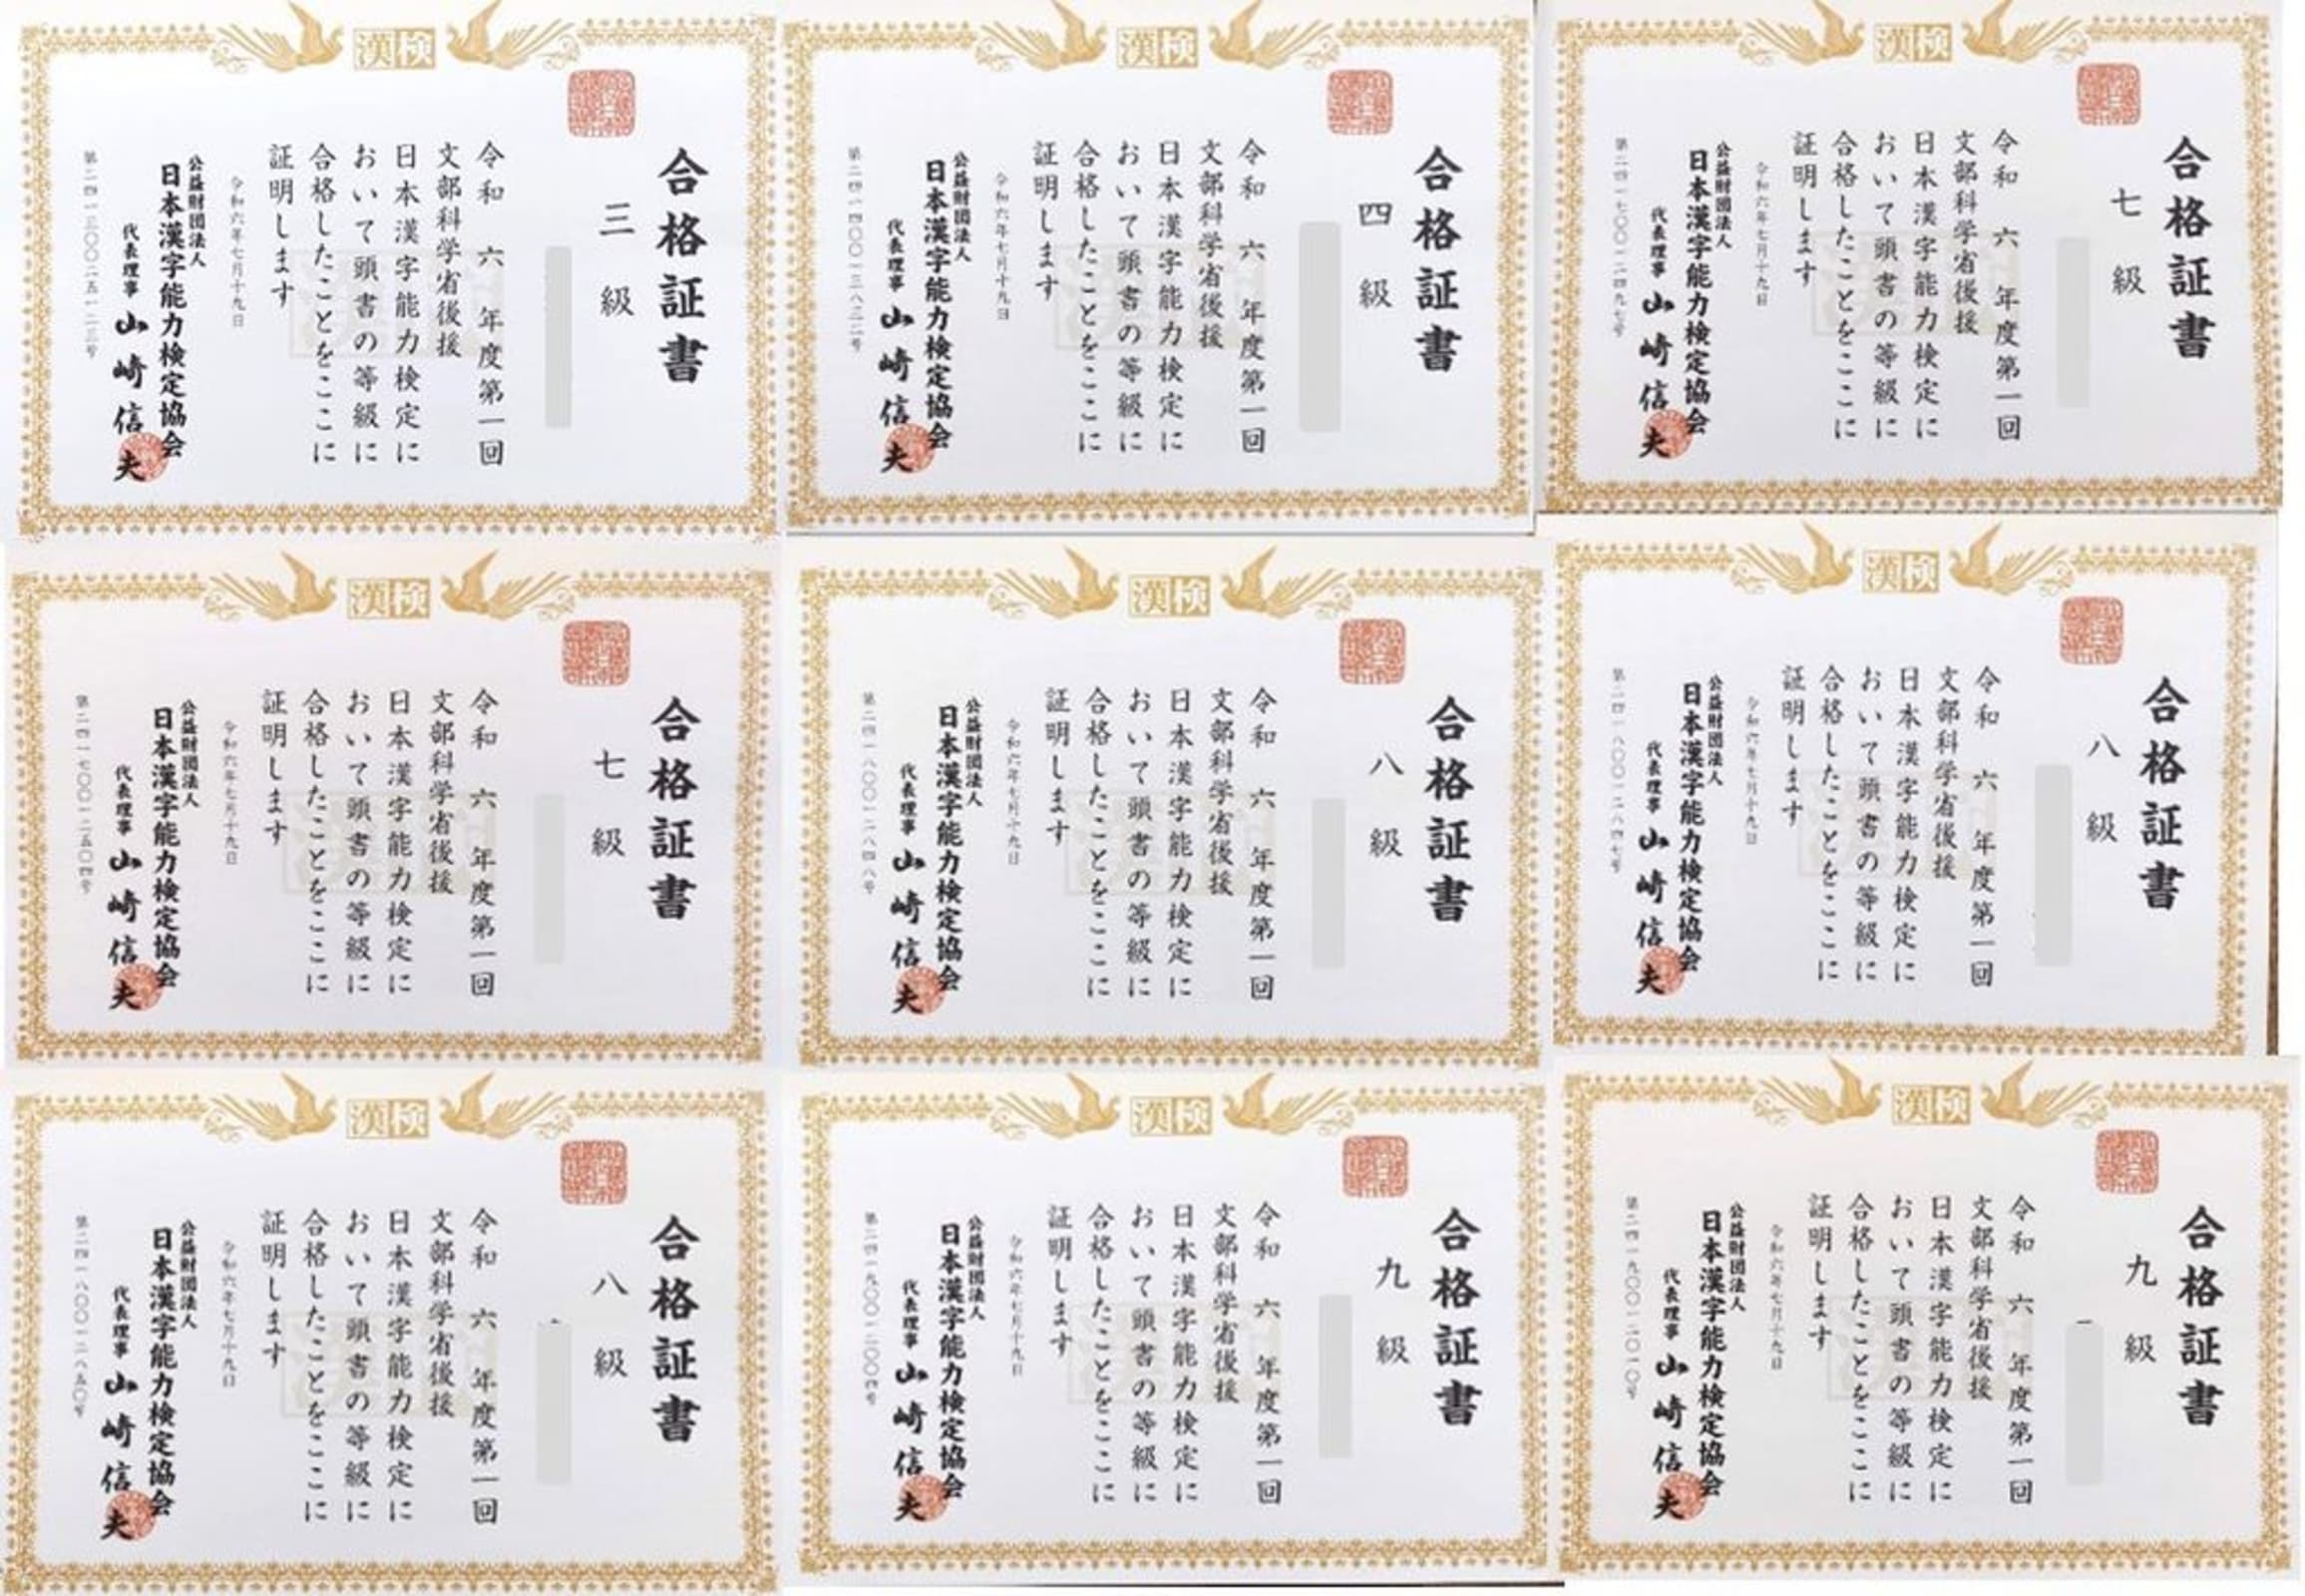 漢検
合格証書
三級
令和 六 年度第一回
文部科学省後援
日本漢字能力検定に
おいて頭書の等級に
合格したことをここに
証明します
令和六年七月十九日
公益財団法人
日本漢字能力検定協会
代表理事 山崎信夫
漢検
合格証書
四級
令和 六 年度第一回
文部科学省後援
日本漢字能力検定に
おいて頭書の等級に
合格したことをここに
証明します
令和六年七月十九日
公益財団法人
日本漢字能力検定協会
代表理事 山崎信夫
漢検
合格証書
七級
令和 六 年度第一回
文部科学省後援
日本漢字能力検定に
おいて頭書の等級に
合格したことをここに
証明します
令和六年七月十九日
公益財団法人
日本漢字能力検定協会
代表理事 山崎信夫
第二四一七〇〇一二四九七号
漢検
合格証書
七級
令和 六 年度第一回
文部科学省後援
日本漢字能力検定に
おいて頭書の等級に
合格したことをここに
証明します
令和六年七月十九日
公益財団法人
日本漢字能力検定協会
代表理事 山崎信夫
第二四一七〇〇一二五〇四号
漢検
合格証書
八級
令和 六 年度第一回
文部科学省後援
日本漢字能力検定に
おいて頭書の等級に
合格したことをここに
証明します
令和六年七月十九日
公益財団法人
日本漢字能力検定協会
代表理事 山崎信夫
第二四一八〇〇一二八四八号
漢検
合格証書
八級
令和 六 年度第一回
文部科学省後援
日本漢字能力検定に
おいて頭書の等級に
合格したことをここに
証明します
令和六年七月十九日
公益財団法人
日本漢字能力検定協会
代表理事 山崎信夫
第二四一八〇〇一二八四七号
漢検
合格証書
八級
令和 六 年度第一回
文部科学省後援
日本漢字能力検定に
おいて頭書の等級に
合格したことをここに
証明します
令和六年七月十九日
公益財団法人
日本漢字能力検定協会
代表理事 山崎信夫
第二四一八〇〇一二八五〇号
漢検
合格証書
九級
令和 六 年度第一回
文部科学省後援
日本漢字能力検定に
おいて頭書の等級に
合格したことをここに
証明します
令和六年七月十九日
公益財団法人
日本漢字能力検定協会
代表理事 山崎信夫
漢検
合格証書
九級
令和 六 年度第一回
文部科学省後援
日本漢字能力検定に
おいて頭書の等級に
合格したことをここに
証明します
令和六年七月十九日
公益財団法人
日本漢字能力検定協会
代表理事 山崎信夫